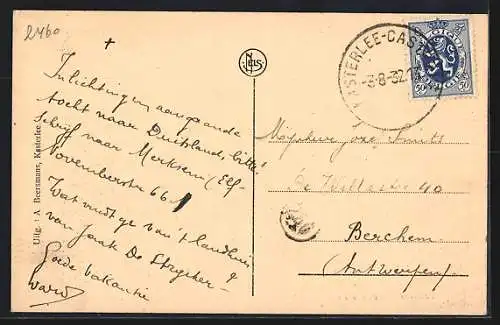 2460
+
Inlichtingen aangaande
tocht naar Duitsland, bitte
schrijf naar Merksem (Elf-
Novemberstr 66
Wat vindt ge van 't landhuis
van Jaak De Strycker?
Goede vakantie
Ward
Uitg.: A. Beersmans, Kasterlee
NELS
KASTERLEE-CAST
-3-8-32
BELGIQUE
BELGIË
50
50
Mejuffer
Smits
De Villastr 40
Berchem
(Antwerpen)